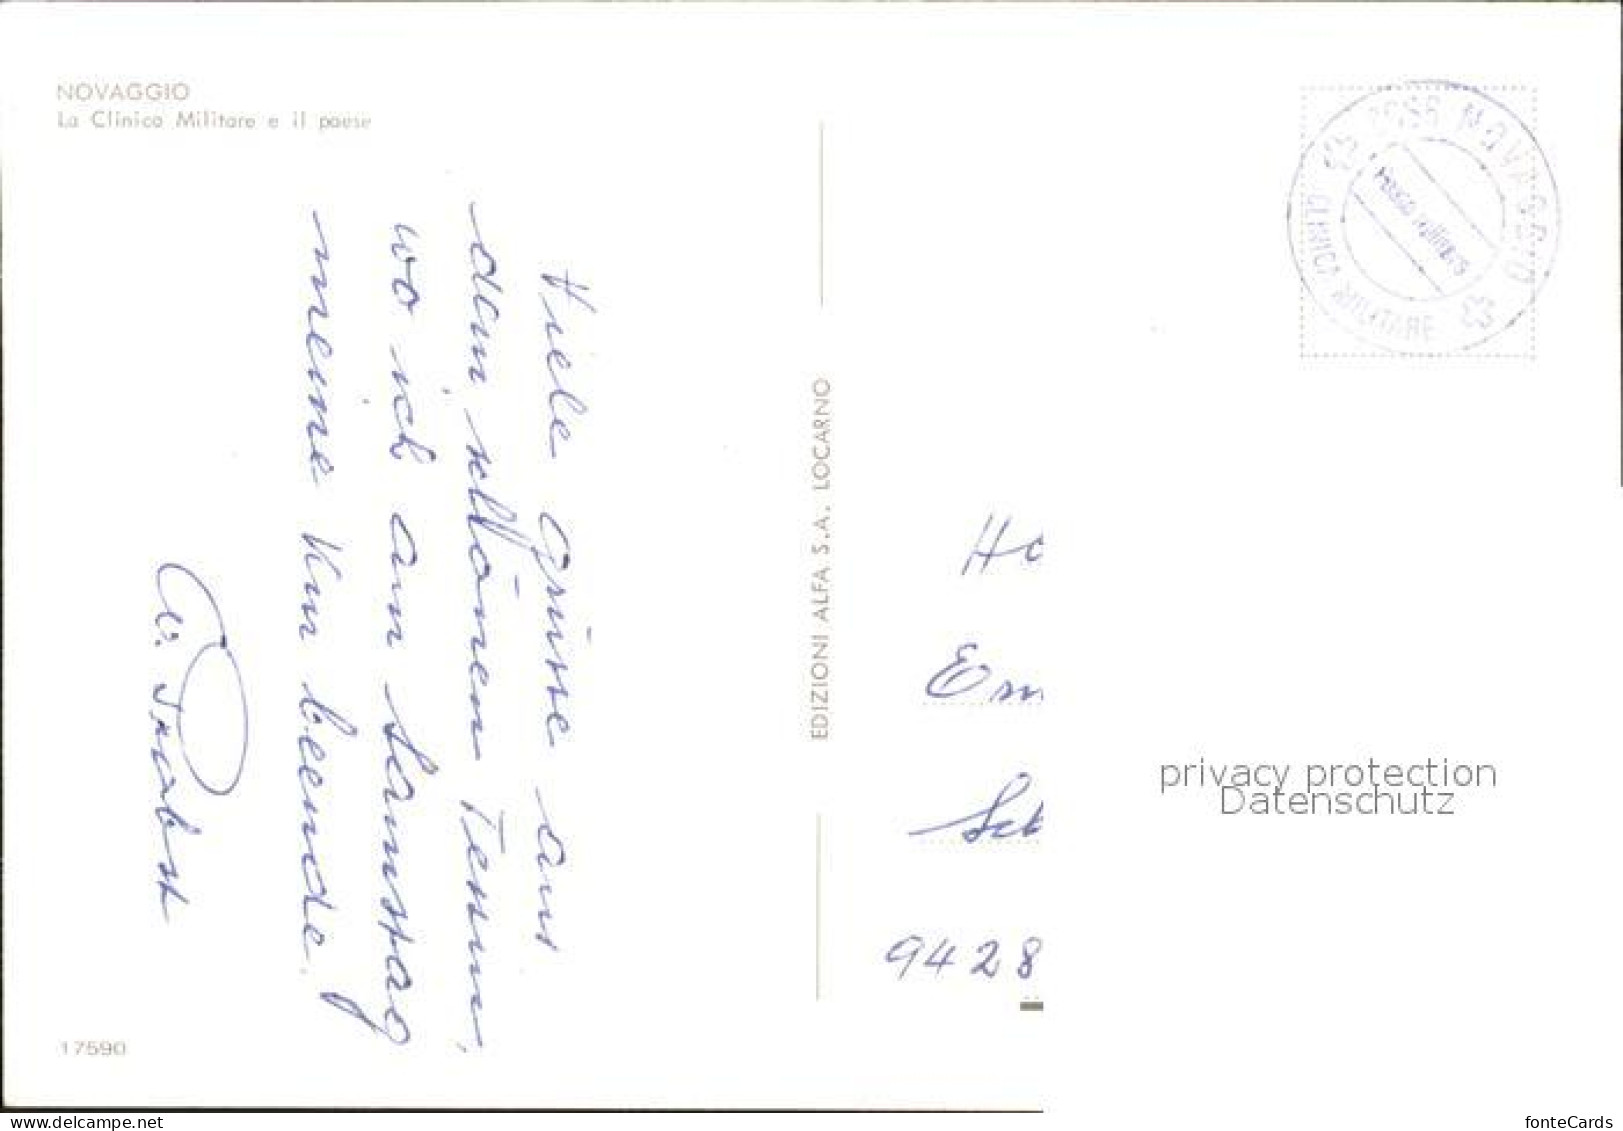 NOVAGGIO
La Clinica Militare e il paese
Viele Grüsse aus
dem schönen Tessin,
wo ich am Samstag
meine Kur beende.
EDIZIONI ALFA S.A. LOCARNO
NOVAGGIO
CLINICA MILITARE
Posta militare
Ho
Em
Sch
9428
privacy protection
Datenschutz
17590
www.delcampe.net
fonteCards